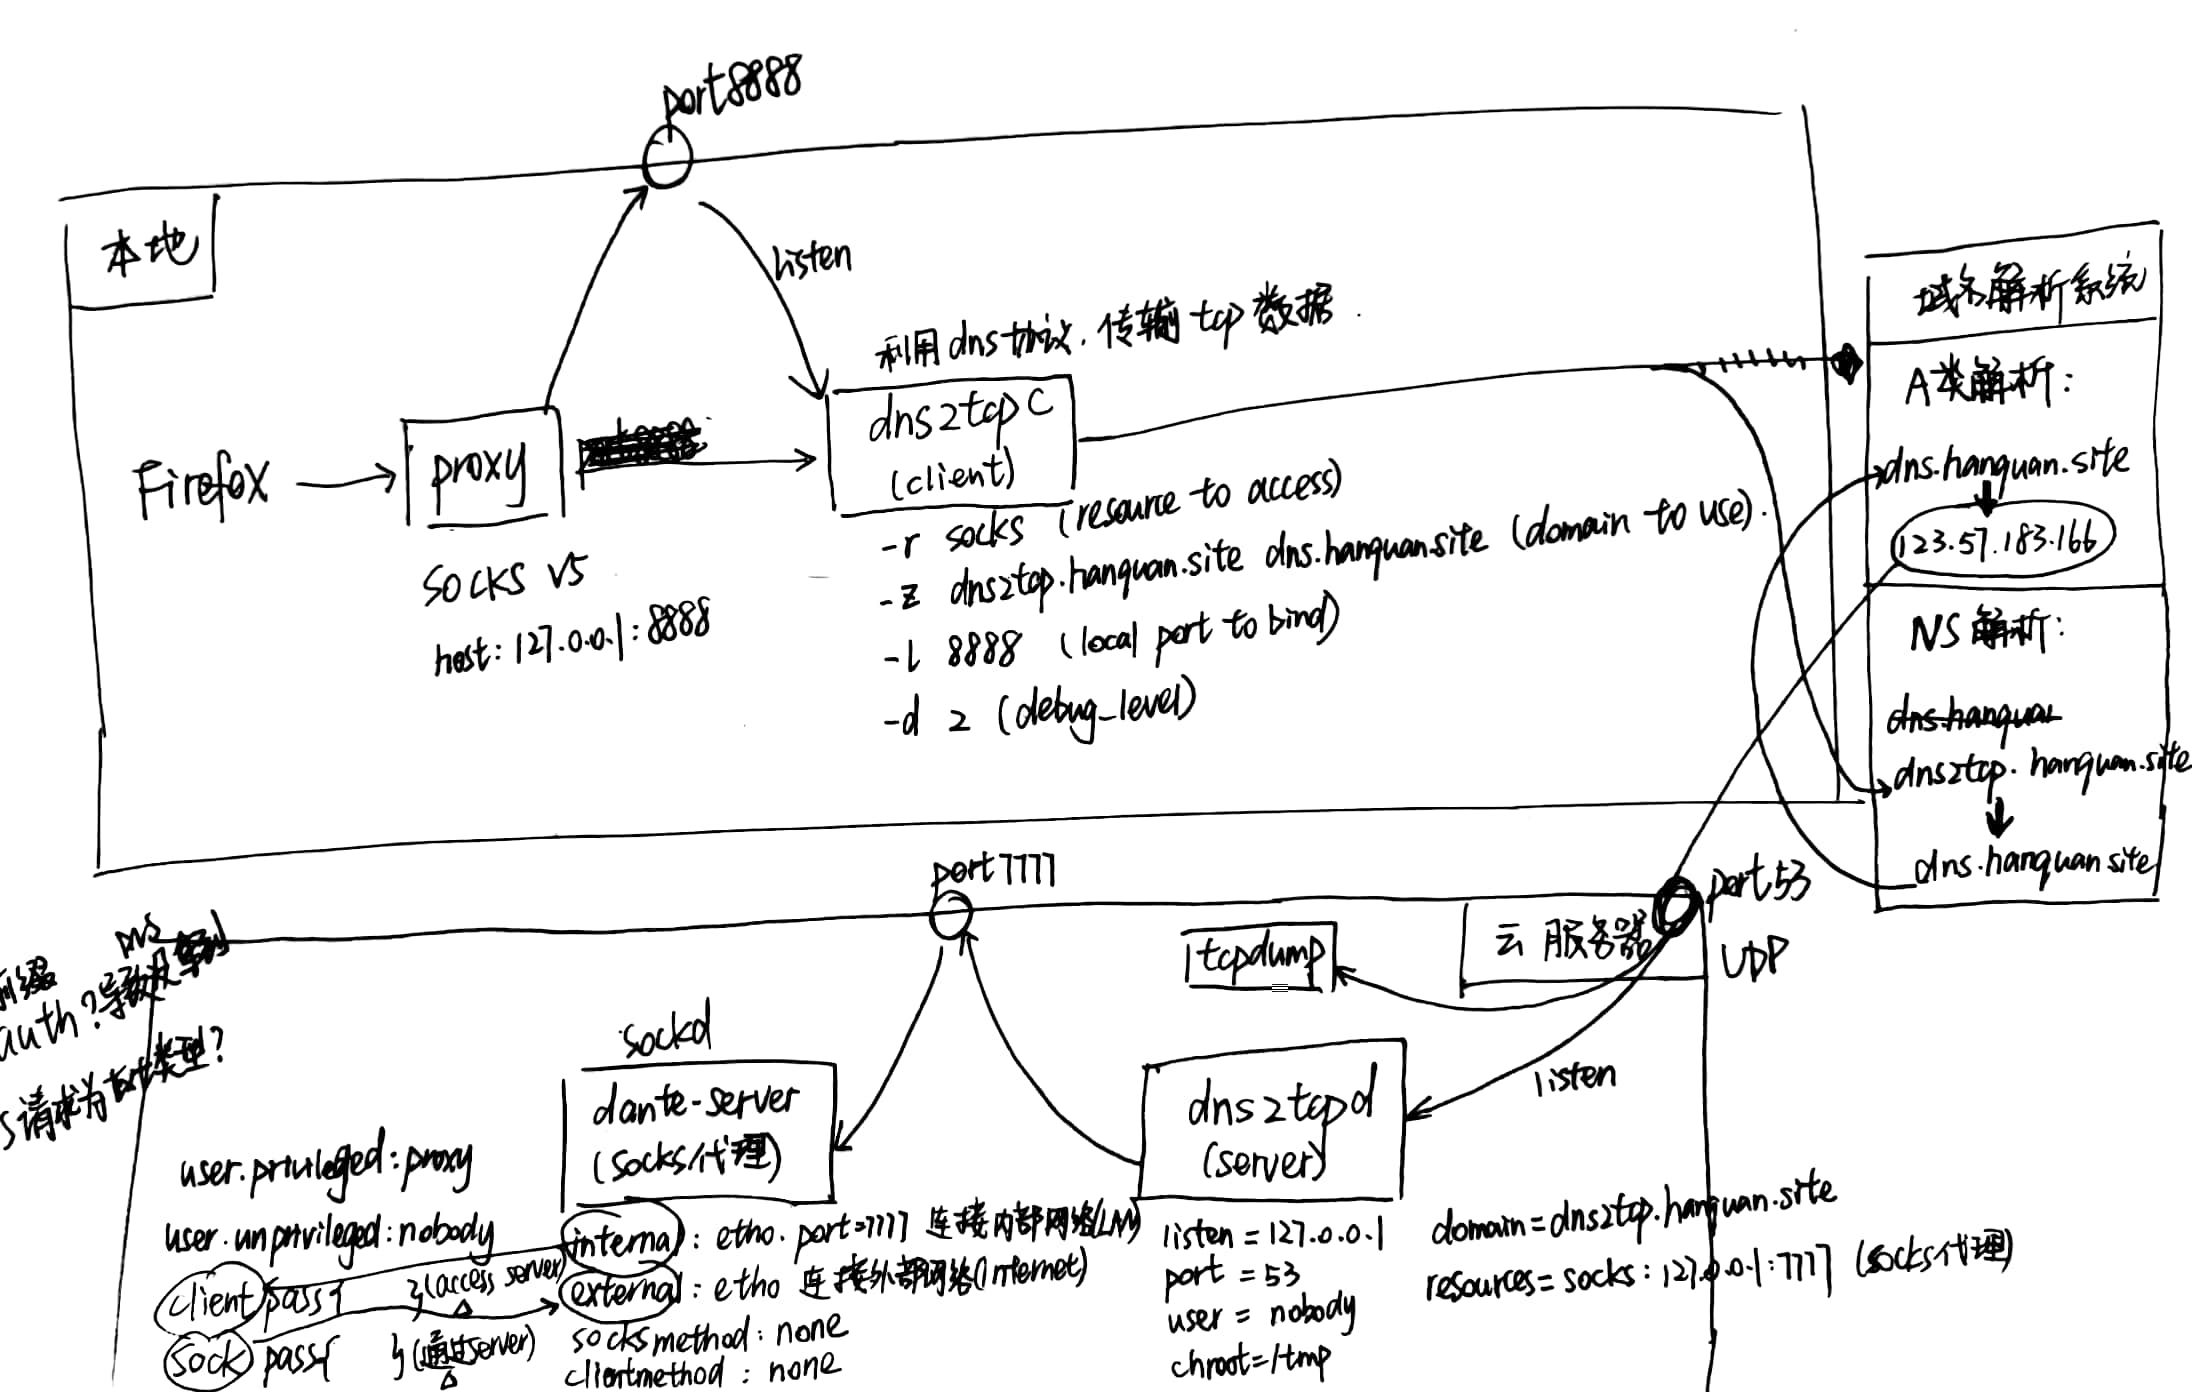 port8888
本地
listen
利用dns协议.传输tcp数据.
Firefox
proxy
socks v5
host: 127.0.0.1:8888
dns2tcp c
(client)
-r socks (resource to access)
-z dns2tcp.hanquan.site dns.hanquan.site (domain to use).
-l 8888 (local port to bind)
-d 2 (debug_level)
域名解析系统
A类解析:
dns.hanquan.site
123.57.183.166
NS解析:
dns.hanquan
dns2tcp.hanquan.site
dns.hanquan.site
port7777
port53
UDP
云服务器
tcpdump
listen
DNS
auth?导致
请求为txt类型?
sockd
dante-server
(socks代理)
dns2tcpd
(server)
user.privileged: proxy
user.unprivileged: nobody
client pass{ }(access server)
sock pass{ }(通过server)
internal: eth0. port=7777 连接内部网络(LAN)
external: eth0 连接外部网络(Internet)
socksmethod: none
clientmethod: none
listen = 127.0.0.1
port = 53
user = nobody
chroot=/tmp
domain=dns2tcp.hanquan.site
resources=socks:127.0.0.1:7777 (socks代理)